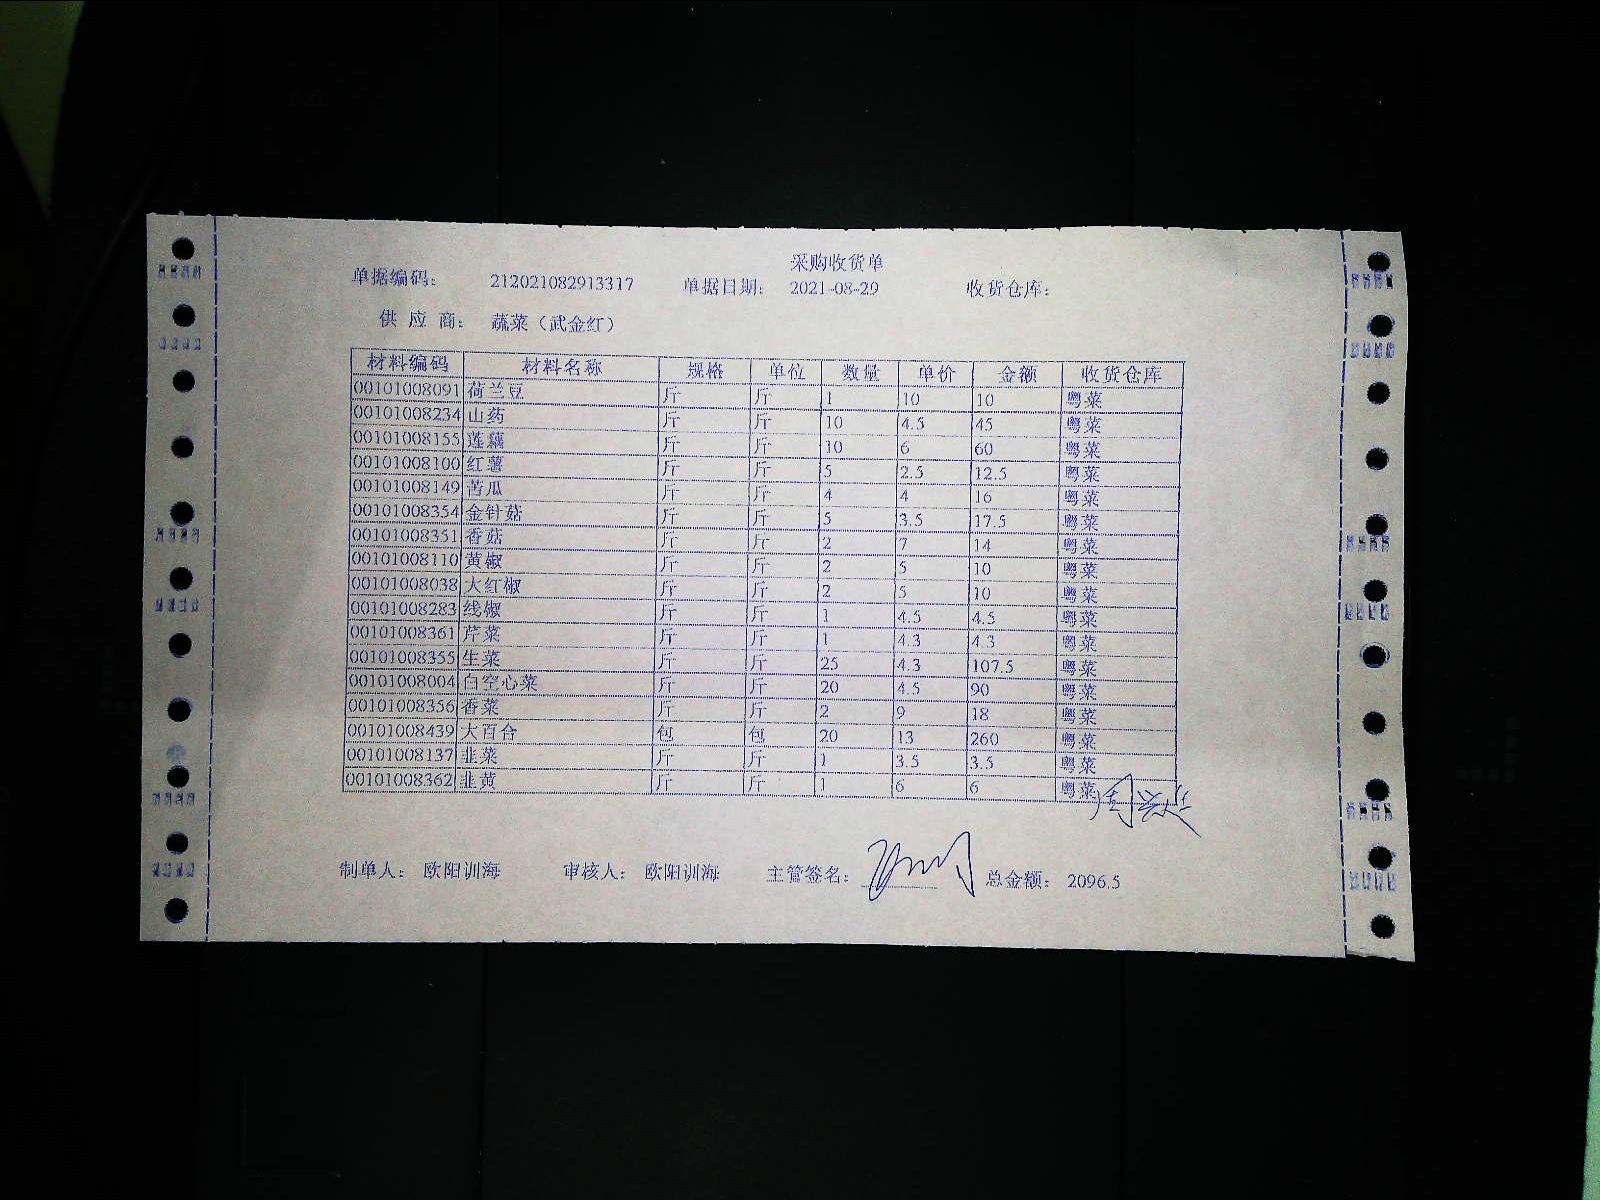 采购收货单
单据编码: 212021082913317 单据日期: 2021-08-29 收货仓库:
供应商: 蔬菜（武金红）
材料编码 材料名称 规格 单位 数量 单价 金额 收货仓库
00101008091 荷兰豆 斤 斤 1 10 10 粤菜
00101008234 山药 斤 斤 10 4.5 45 粤菜
00101008155 莲藕 斤 斤 10 6 60 粤菜
00101008100 红薯 斤 斤 5 2.5 12.5 粤菜
00101008149 苦瓜 斤 斤 4 4 16 粤菜
00101008354 金针菇 斤 斤 5 3.5 17.5 粤菜
00101008351 香菇 斤 斤 2 7 14 粤菜
00101008110 黄椒 斤 斤 2 5 10 粤菜
00101008038 大红椒 斤 斤 2 5 10 粤菜
00101008283 线椒 斤 斤 1 4.5 4.5 粤菜
00101008361 芹菜 斤 斤 1 4.3 4.3 粤菜
00101008355 生菜 斤 斤 25 4.3 107.5 粤菜
00101008004 白空心菜 斤 斤 20 4.5 90 粤菜
00101008356 香菜 斤 斤 2 9 18 粤菜
00101008439 大百合 包 包 20 13 260 粤菜
00101008137 韭菜 斤 斤 1 3.5 3.5 粤菜
00101008362 韭黄 斤 斤 1 6 6 粤菜
制单人: 欧阳训海 审核人: 欧阳训海 主管签名: 总金额: 2096.5